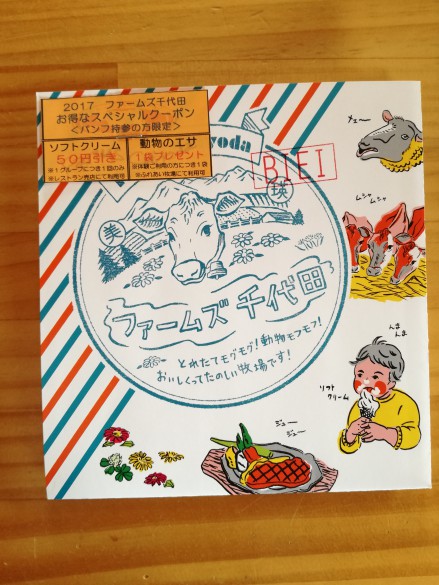 2017 ファームズ千代田
お得なスペシャルクーポン
<パンフ持参の方限定>
ソフトクリーム
50円引き
※1グループにつき1回のみ
※レストラン売店にて利用可
動物のエサ
1袋プレゼント
※体験ご利用の方につき1袋
※ふれあい牧場にて利用可
yoda
BIEI
美
瑛
ファームズ 千代田
とれたてモグモグ!動物モフモフ!
おいしくってたのしい牧場です!
メェ〜
ムシャ
ムシャ
んま
んま
ソフト
クリーム
ジュー
ジュー